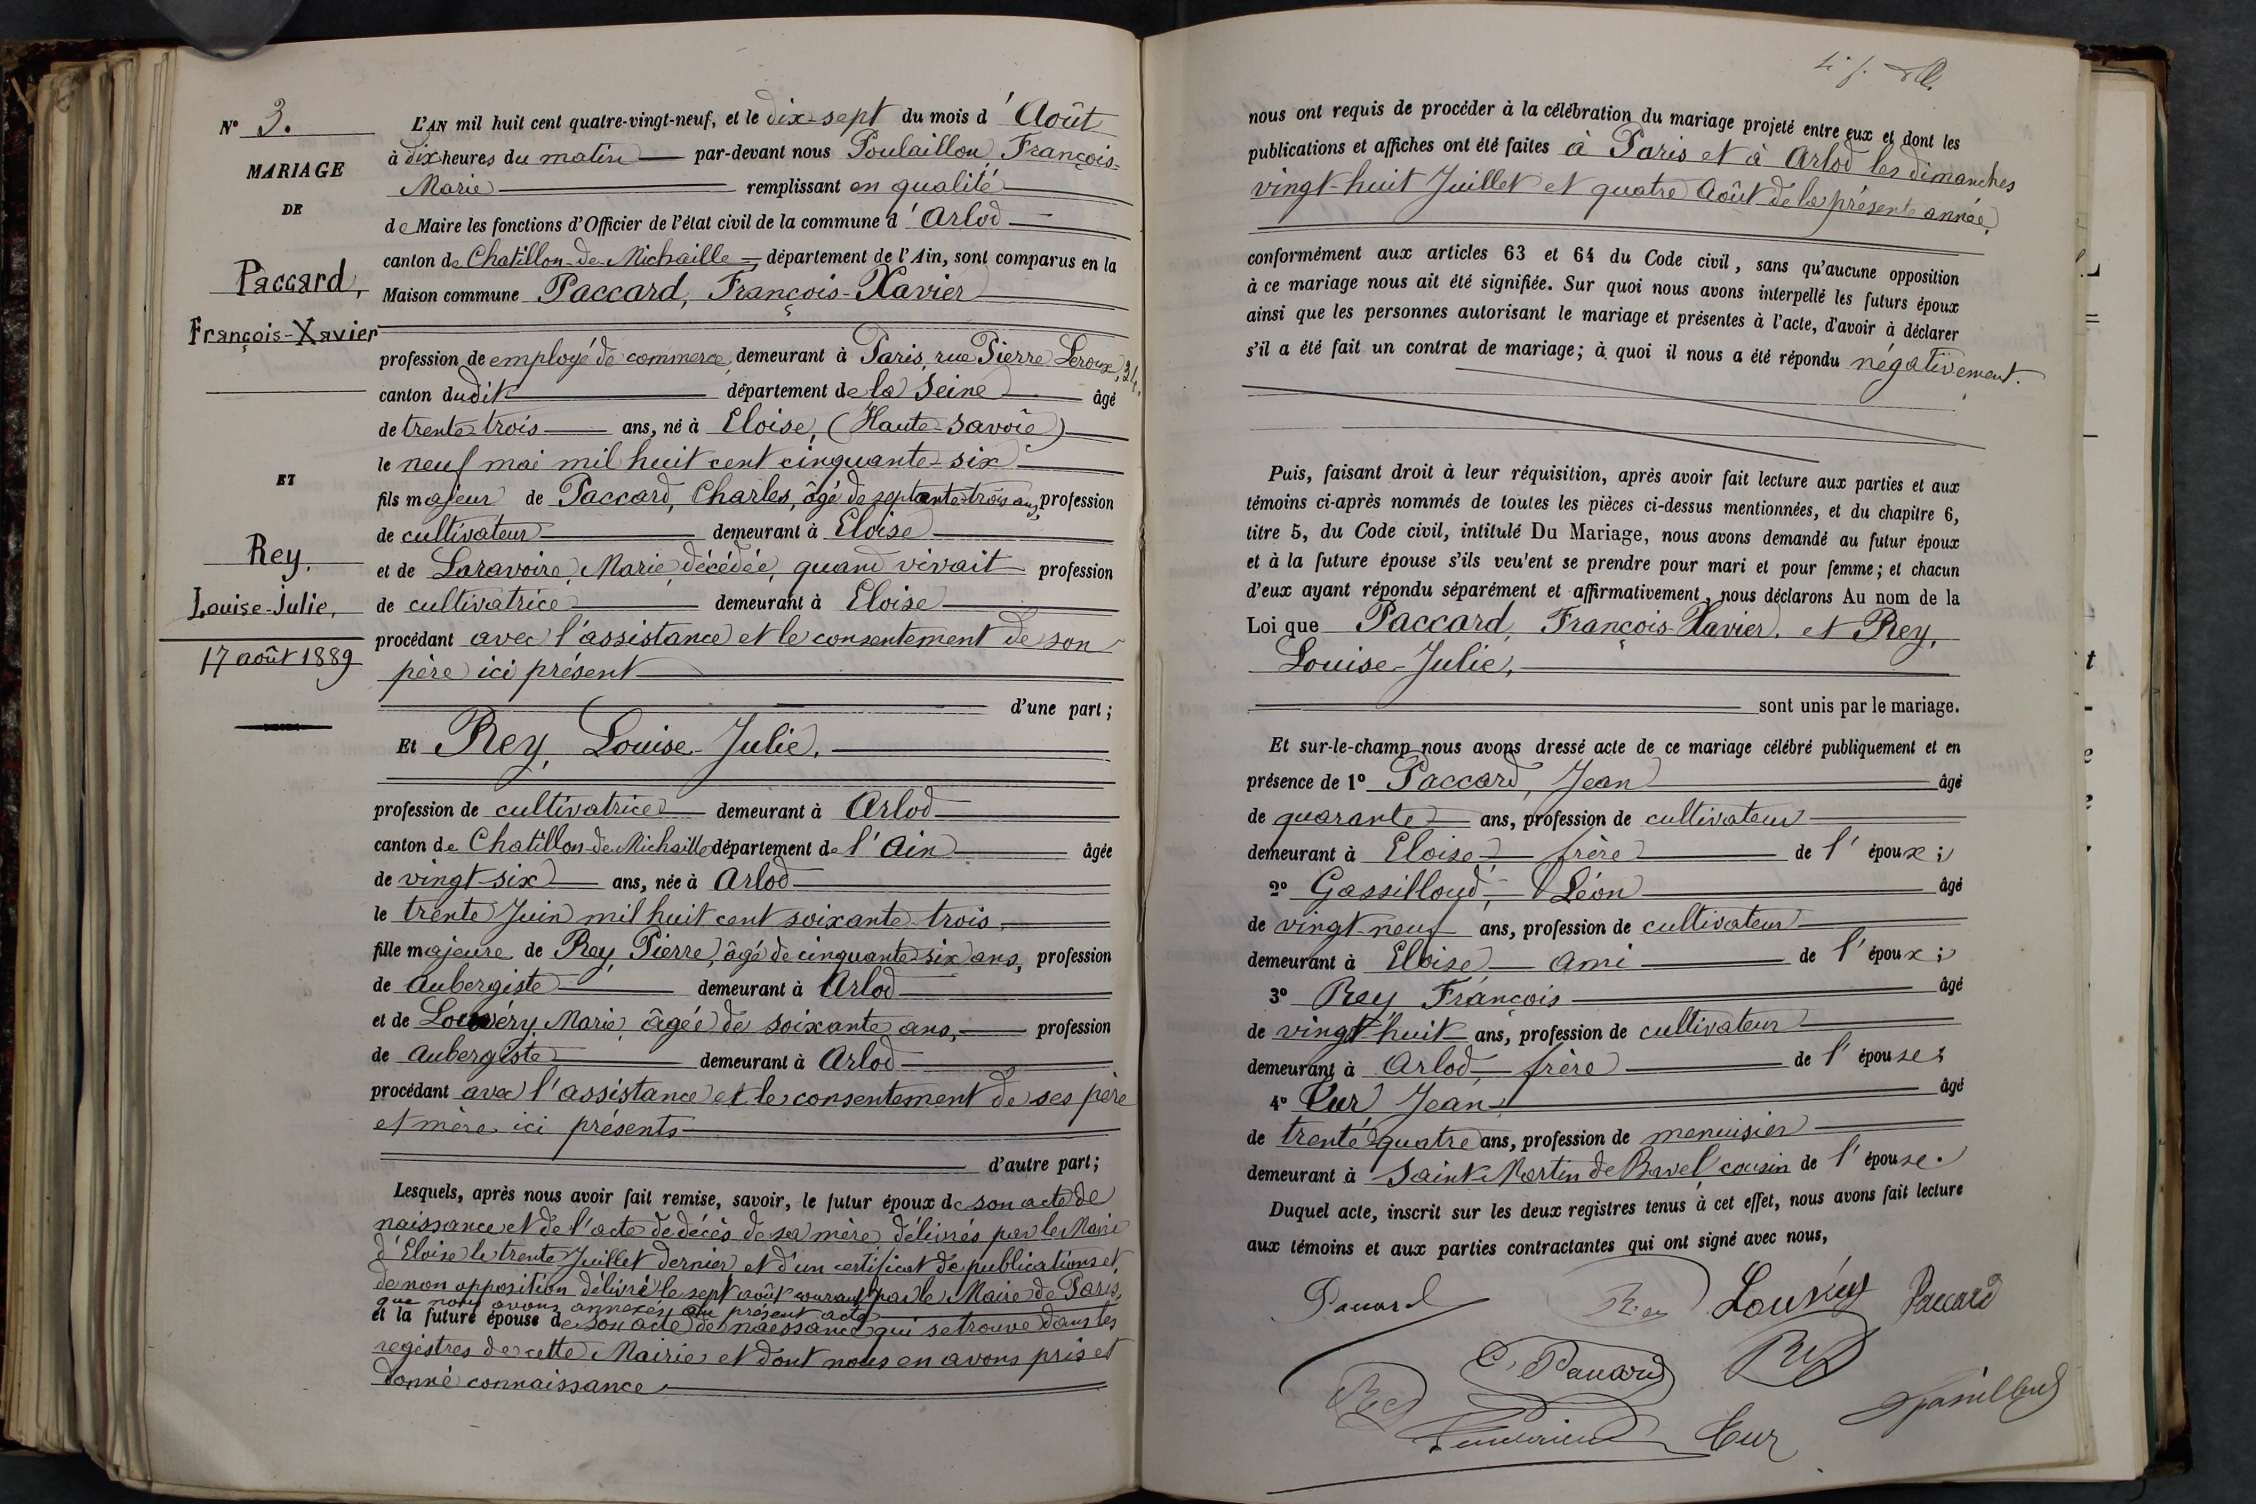 N° 3.
MARIAGE
DE
Paccard,
François-Xavier
ET
Rey,
Louise-Julie,
17 août 1889
L'AN mil huit cent quatre-vingt-neuf, et le dix-sept du mois d'Août
à dix heures du matin par-devant nous Poulaillon, François-
Marie remplissant en qualité
de Maire les fonctions d'Officier de l'état civil de la commune d'Arlod
canton de Chatillon-de-Michaille département de l'Ain, sont comparus en la
Maison commune Paccard, François-Xavier
profession de employé de commerce, demeurant à Paris, rue Pierre Leroux, 24,
canton dudit département de la Seine âgé
de trente-trois ans, né à Eloise, (Haute-Savoie)
le neuf mai mil huit cent cinquante-six
fils majeur de Paccard, Charles, âgé de septante-trois ans, profession
de cultivateur demeurant à Eloise
et de Laravoire, Marie, décédée, quand vivait profession
de cultivatrice demeurant à Eloise
procédant avec l'assistance et le consentement de son
père ici présent
d'une part;
Et Rey, Louise-Julie,
profession de cultivatrice demeurant à Arlod
canton de Chatillon-de-Michaille département de l'Ain âgée
de vingt-six ans, née à Arlod
le trente Juin mil huit cent soixante-trois
fille majeure de Rey, Pierre, âgé de cinquante-six ans, profession
de aubergiste demeurant à Arlod
et de Louvéry, Marie, âgée de soixante ans, profession
de aubergiste demeurant à Arlod
procédant avec l'assistance et le consentement de ses père
et mère ici présents
d'autre part;
Lesquels, après nous avoir fait remise, savoir, le futur époux de son acte de
naissance et de l'acte de décès de sa mère délivrés par le Maire
d'Eloise le trente Juillet dernier et d'un certificat de publications et
de non opposition délivré le sept août courant par le Maire de Paris,
que nous avons annexés au présent acte
et la future épouse de son acte de naissance qui se trouve dans les
registres de cette Mairie et dont nous en avons pris et
donné connaissance
nous ont requis de procéder à la célébration du mariage projeté entre eux et dont les
publications et affiches ont été faites à Paris et à Arlod les dimanches
vingt-huit Juillet et quatre Août de la présente année,
conformément aux articles 63 et 64 du Code civil, sans qu'aucune opposition
à ce mariage nous ait été signifiée. Sur quoi nous avons interpellé les futurs époux
ainsi que les personnes autorisant le mariage et présentes à l'acte, d'avoir à déclarer
s'il a été fait un contrat de mariage; à quoi il nous a été répondu négativement.
Puis, faisant droit à leur réquisition, après avoir fait lecture aux parties et aux
témoins ci-après nommés de toutes les pièces ci-dessus mentionnées, et du chapitre 6,
titre 5, du Code civil, intitulé Du Mariage, nous avons demandé au futur époux
et à la future épouse s'ils veu'ent se prendre pour mari et pour femme; et chacun
d'eux ayant répondu séparément et affirmativement, nous déclarons Au nom de la
Loi que Paccard, François-Xavier, et Rey,
Louise-Julie,
sont unis par le mariage.
Et sur-le-champ nous avons dressé acte de ce mariage célébré publiquement et en
présence de 1° Paccard, Jean âgé
de quarante ans, profession de cultivateur
demeurant à Eloise, frère de l'époux;
2° Gassilloud, Léon âgé
de vingt-neuf ans, profession de cultivateur
demeurant à Eloise ami de l'époux;
3° Rey François âgé
de vingt-huit ans, profession de cultivateur
demeurant à Arlod frère de l'épouse;
4° Cur Jean âgé
de trente quatre ans, profession de menuisier
demeurant à Saint-Martin de Bavel, cousin de l'épouse.
Duquel acte, inscrit sur les deux registres tenus à cet effet, nous avons fait lecture
aux témoins et aux parties contractantes qui ont signé avec nous,
Paccard Rey Louvéry Paccard
C. Paccard Rey
Rey Gassilloud
Cur